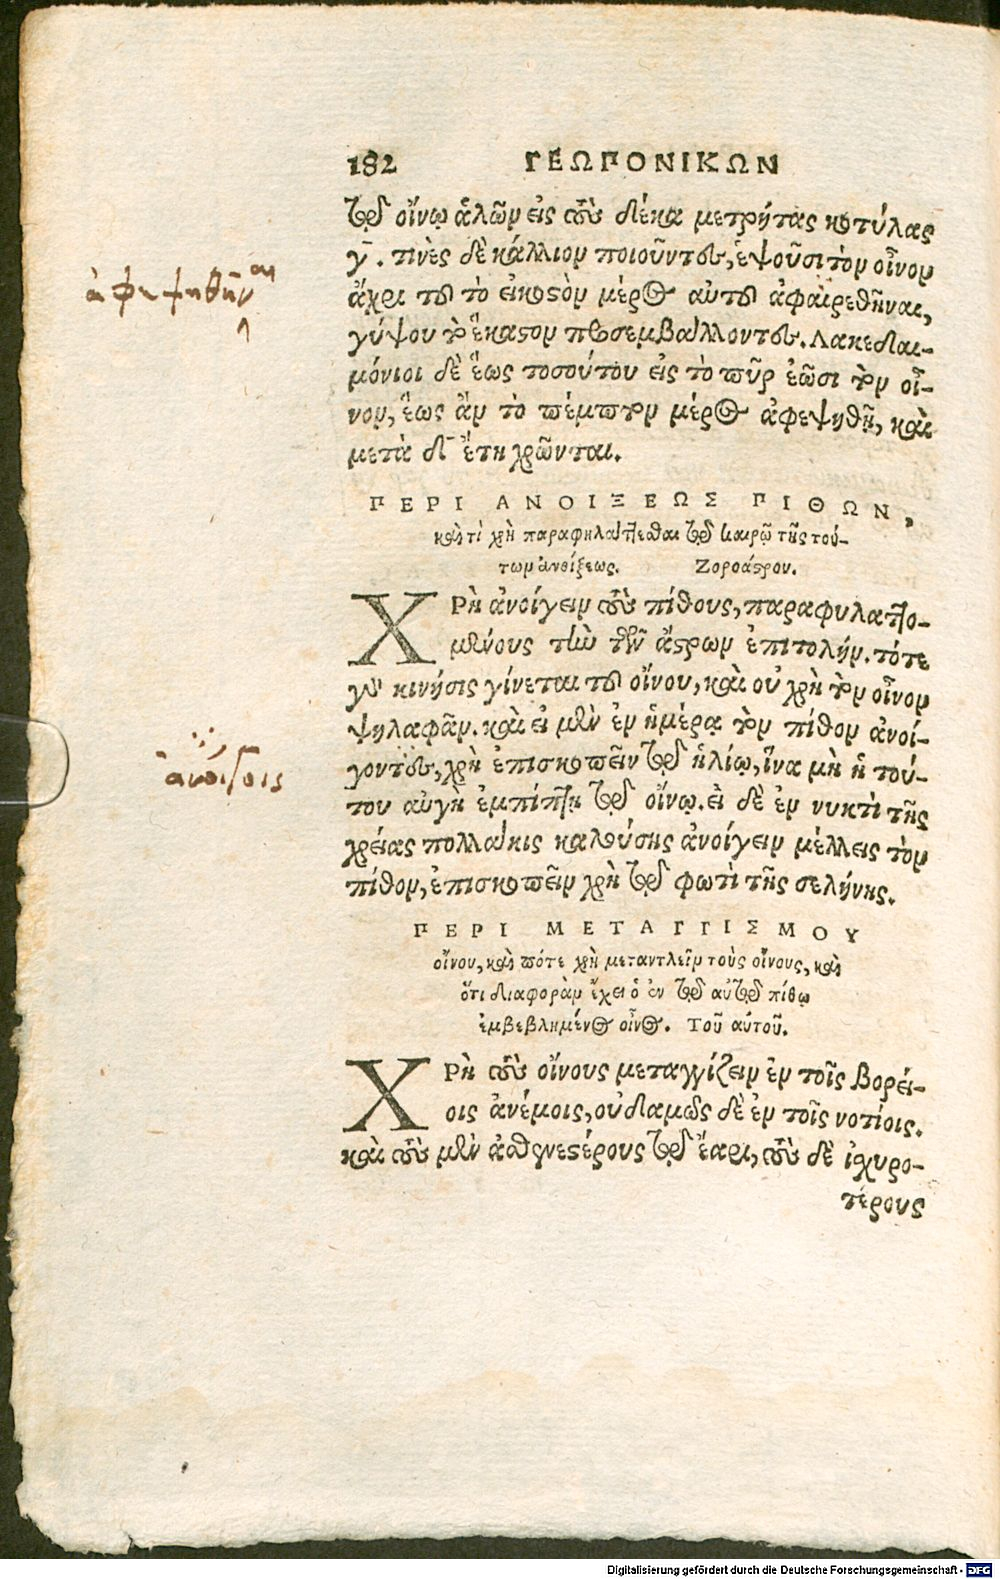 182 ΓΕΩΠΟΝΙΚΩΝ
τῷ οἴνῳ ἁλῶν εἰς τοὺς δέκα μετρήτας κοτύλας
γ̄. τινὲς δὲ κάλλιον ποιοῦντες, ἑψοῦσι τὸν οἶνον
ἄχρι τοῦ τὸ εἰκοστὸν μέρος αὐτοῦ ἀφαιρεθῆναι,
γύψου τὸ ἕκαστον προσεμβάλλοντες. Λακεδαι-
μόνιοι δὲ ἕως τοσούτου εἰς τὸ πῦρ ἐῶσι τὸν οἶ-
νον, ἕως ἂν τὸ πέμπτον μέρος ἀφεψηθῇ, καὶ
μετὰ δ̄ ἔτη χρῶνται.
ΠΕΡΙ ΑΝΟΙΞΕΩΣ ΠΙΘΩΝ,
καὶ τί χρὴ παραφυλάττεσθαι τῷ καιρῷ τῆς τού-
των ἀνοίξεως. Ζοροάστρου.
ΧΡὴ ἀνοίγειν τοὺς πίθους, παραφυλαττο-
μένους τὴν τῶν ἄστρων ἐπιτολήν. τότε
γὰρ κινήσις γίνεται τοῦ οἴνου, καὶ οὐ χρὴ τὸν οἶνον
ψηλαφᾶν. καὶ εἰ μὲν ἐν ἡμέρᾳ τὸν πίθον ἀνοί-
γοντες, χρὴ ἐπισκοπεῖν τῷ ἡλίῳ, ἵνα μὴ ἡ τού-
του αὐγὴ ἐμπίπτῃ τῷ οἴνῳ. εἰ δὲ ἐν νυκτὶ τῆς
χρείας πολλάκις καλούσης ἀνοίγειν μέλλεις τὸν
πίθον, ἐπισκοπεῖν χρὴ τῷ φωτὶ τῆς σελήνης.
ΠΕΡΙ ΜΕΤΑΓΓΙΣΜΟΥ
οἴνου, καὶ πότε χρὴ μεταντλεῖν τοὺς οἴνους, καὶ
ὅτι διαφορὰν ἔχει ὁ ἐν τῷ αὐτῷ πίθῳ
ἐμβεβλημένος οἶνος. Τοῦ αὐτοῦ.
ΧΡὴ τοὺς οἴνους μεταγγίζειν ἐν τοῖς βορεί-
οις ἀνέμοις, οὐδαμῶς δὲ ἐν τοῖς νοτίοις.
καὶ τοὺς μὲν ἀσθενεστέρους τῷ ἔαρι, τοὺς δὲ ἰσχυρο-
τέρους
ἀφεψηθῆναι
Digitalisierung gefördert durch die Deutsche Forschungsgemeinschaft - DFG